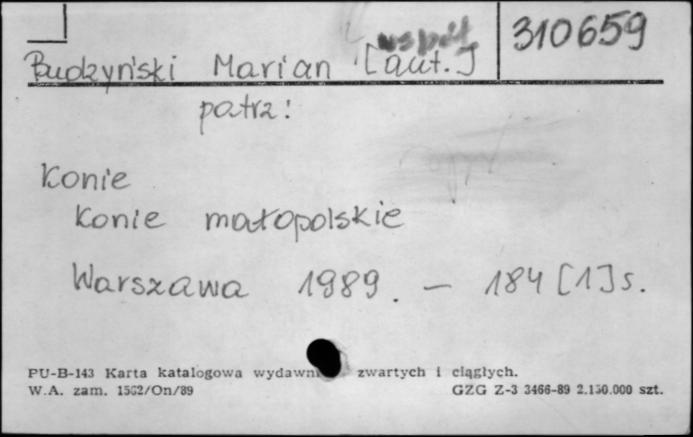 310659
współ
Budzyński Marian [aut.]
patrz:
Konie
Konie małopolskie
Warszawa 1989. — 184 [1] s.
PU-B-143 Karta katalogowa wydawn zwartych i ciągłych.
W.A. zam. 1562/On/89 GZG Z-3 3466-89 2.150.000 szt.